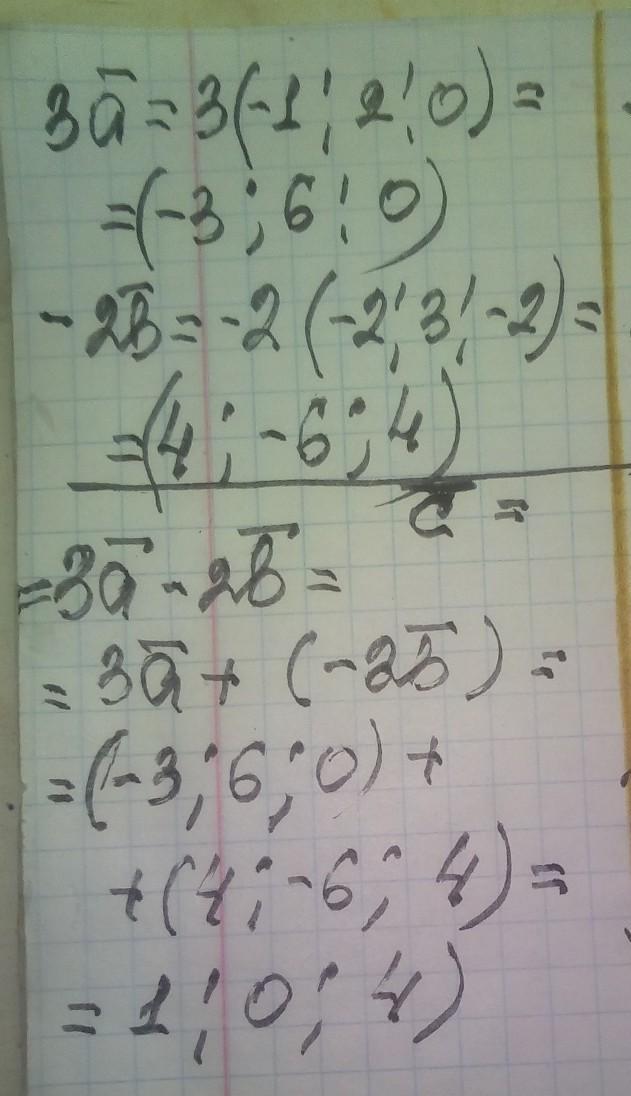 3a̅ = 3(-1; 2; 0) =
=(-3; 6; 0)
- 2b̅ = -2 (-2; 3; -2) =
=(4; -6; 4)
c̅ =
=3a̅ - 2b̅ =
= 3a̅ + (-2b̅) =
=(-3; 6; 0) +
+(4; -6; 4) =
= 1; 0; 4)